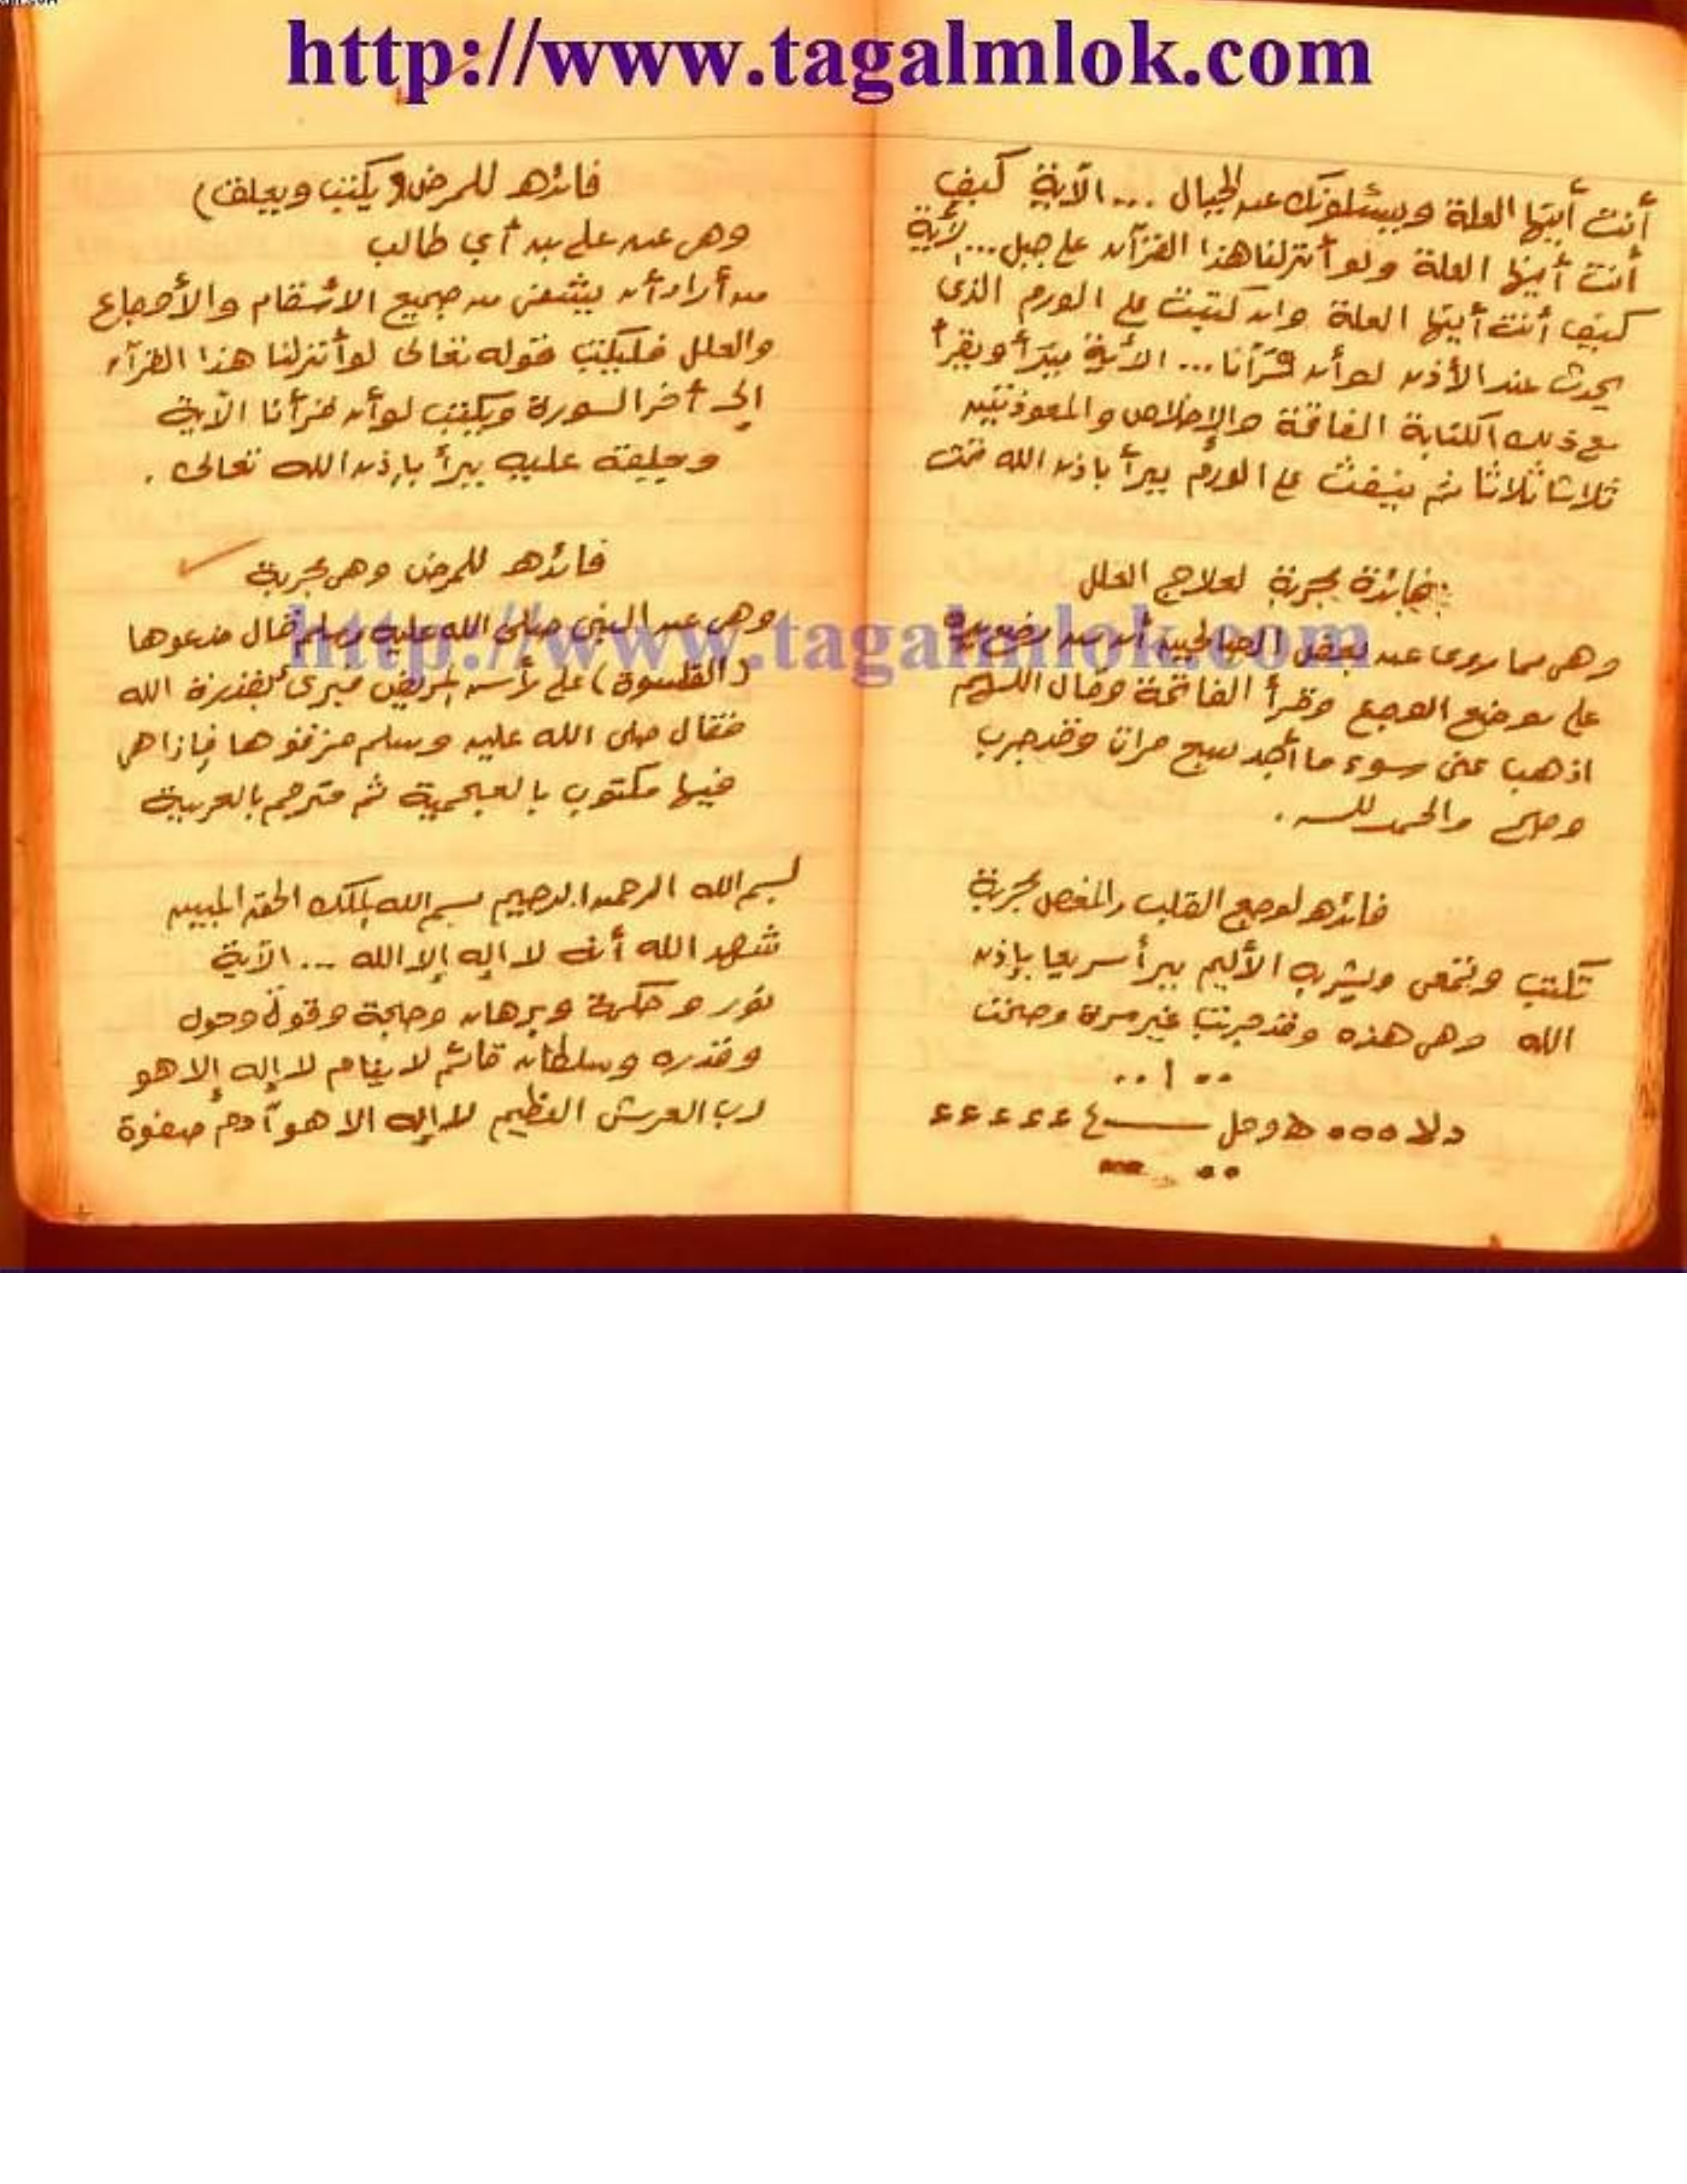 http://www.tagalmlok.com
أنت أيتها العلة ويسئلونك عن الجبال ... الآية كيف
أنت أيتها العلة ولو أنزلنا هذا القرآن على جبل ... الآية
كيف أنت أيتها العلة وان كتبت على الورم الذى
يحدث عند الأذن لو أن قرآنا ... الآية يبرأ ويقرأ
مع ذلك الكتابة الفاتحة والإخلاص والمعوذتين
ثلاثا ثلاثا ثم ينفث على الورم يبرأ باذن الله تمت
فائدة مجربة لعلاج العلل
وهى مما روى عن بعض الصالحين أن من وضع يده
على موضع الوجع وقرأ الفاتحة وقال اللهم
اذهب عنى سوء ما أجد سبع مرات وقد جرب
وصح والحمد لله .
فائده لوجع القلب والمغص مجربة
تكتب وتمحى ويشرب الأليم يبرأ سريعا بإذن
الله وهى هذه وقد جربت غير مرة وصحت
فائده للمرض (يكتب ويعلق)
وهى عن على بن أبي طالب
من أراد أن يشفى من جميع الأسقام والأوجاع
والعلل فليكتب قوله تعالى لو أنزلنا هذا القرآن
إلى آخر السورة ويكتب لو أن قرأنا الآية
ويعلقه عليه يبرأ بإذن الله تعالى .
فائده للمرض وهى مجربة
وهى عن النبى صلى الله عليه وسلم قال ضعوها
(القلنسوة) على رأس المريض فبرئ بقدرة الله
فقال صلى الله عليه وسلم مزقوها فإذا هى
فيها مكتوب بالعجمية ثم مترجم بالعربية
بسم الله الرحمن الرحيم بسم الله الملك الحق المبين
شهد الله أنه لا اله إلا الله ... الآية
نور وحكمة وبرهان وحجة وقوة وحول
وقدره وسلطان قائم لا ينام لا إله إلا هو
رب العرش العظيم لا إله الا هو آدم صفوة
http://www.tagalmlok.com